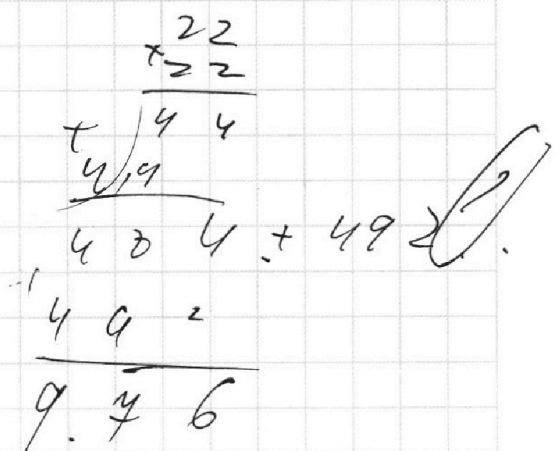 22
×22
44
+
44
484 + 492
492
976